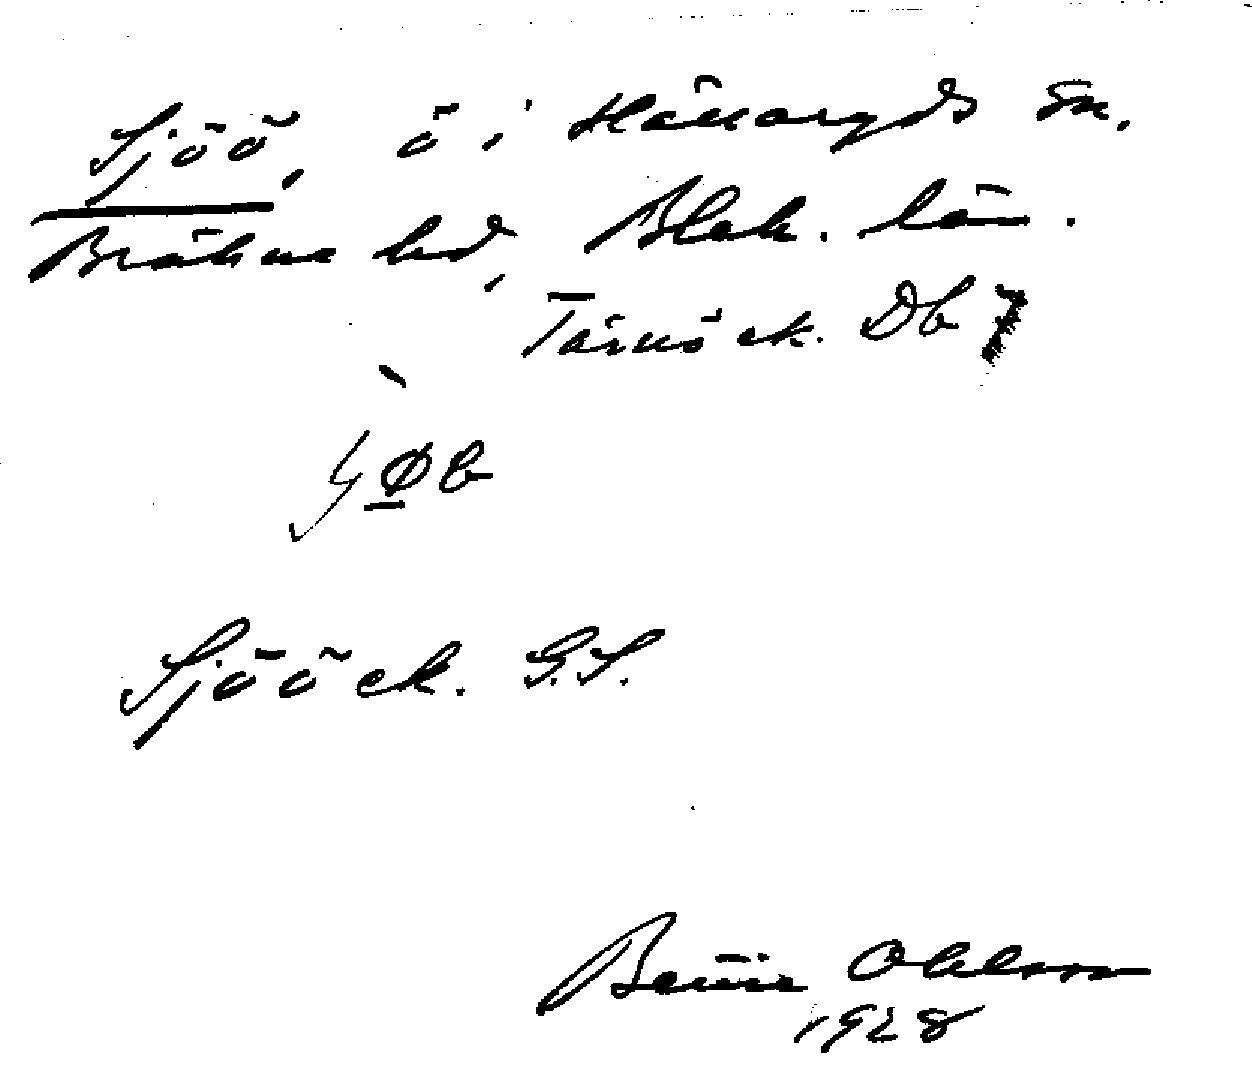 Sjöö, ö i Hällaryds sn,
Bräkne hd, Blek. län.
Tärnö ek. Db 7
Sjöö ek. G.S.
Bennie Ohlsson
1928